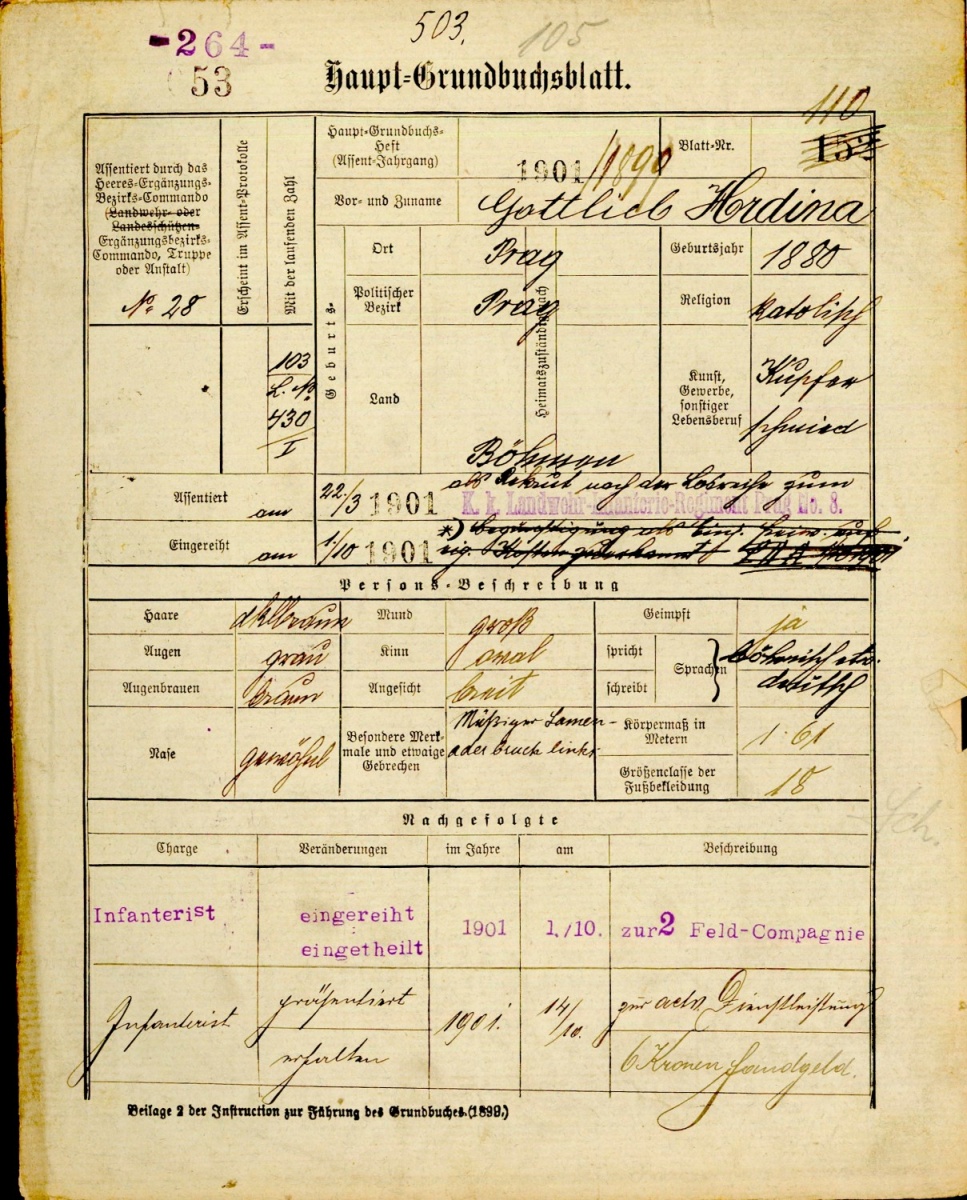 503.
105
-264-
53
Haupt-Grundbuchsblatt.
110
Assentiert durch das
Heeres-Ergänzungs-
Bezirks-Commando
(Landwehr- oder
Landesschützen-
Ergänzungsbezirks-
Commando, Truppe
oder Anstalt)
No 28
Erscheint im Assent-Protokolle
Mit der laufenden Zahl
103
L. No
430
I
Haupt-Grundbuchs-
Heft
(Assent-Jahrgang)
1901/1899
Blatt-Nr.
152
Vor- und Zuname
Gottlieb Hrdina
Geburts-
Ort
Prag
Politischer
Bezirk
Prag
Land
Böhmen
Heimatszuständig nach
Geburtsjahr
1880
Religion
katolisch
Kunst,
Gewerbe,
sonstiger
Lebensberuf
Kupfer
schmied
Assentiert
am
22./3 1901
als Rekrut nach der Losreihe zum
K. k. Landwehr-Infanterie-Regiment Prag No. 8.
Eingereiht
am
1/10 1901
*) Begünstigung als Einj. Freiw. auf
eig. Kosten zuerkannt
Persons-Beschreibung
Haare
dklbraun
Mund
groß
Geimpft
ja
Augen
grau
Kinn
oval
spricht
schreibt
Sprachen
böhmisch etw.
deutsch
Augenbrauen
braun
Angesicht
breit
Nase
gewöhnl
Besondere Merk-
male und etwaige
Gebrechen
Mäßiger Samen-
aderbruch links
Körpermaß in
Metern
1·61
Größenclasse der
Fußbekleidung
18
Nachgefolgte
Charge
Veränderungen
im Jahre
am
Beschreibung
Infanterist
eingereiht
eingetheilt
1901
1./10.
zur 2 Feld-Compagnie
Infanterist
präsentiert
1901.
14/10.
zur activ. Dienstleistung
erhalten
6 Kronen Handgeld.
Beilage 2 der Instruction zur Führung des Grundbuches. (1899.)